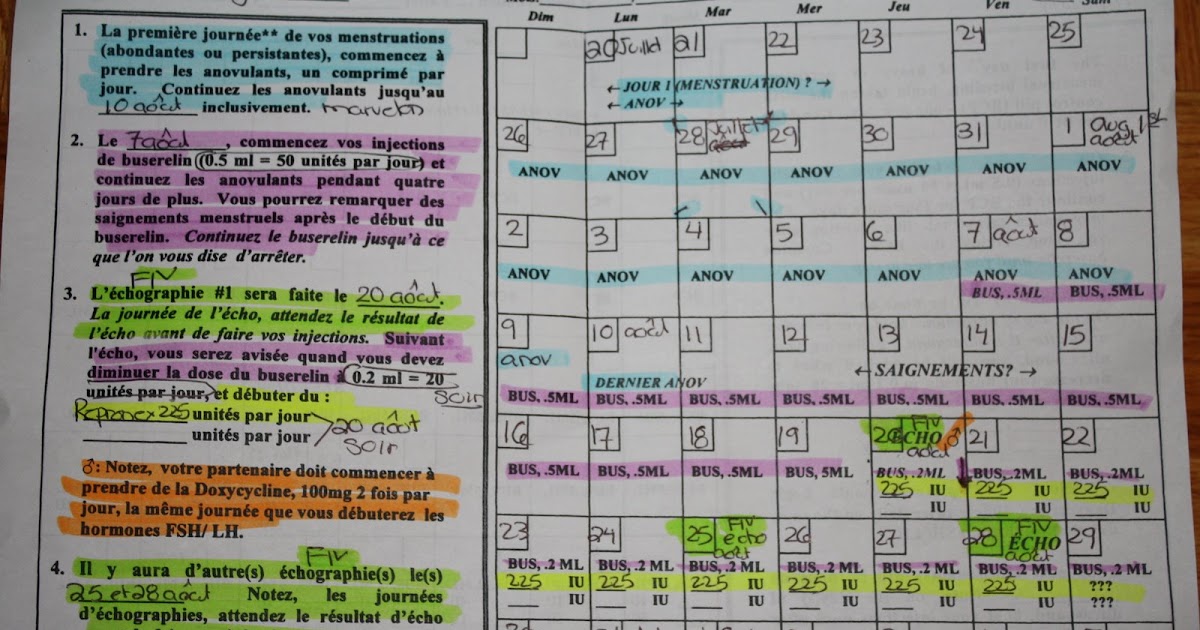 1. La première journée** de vos menstruations
(abondantes ou persistantes), commencez à
prendre les anovulants, un comprimé par
jour. Continuez les anovulants jusqu'au
10 août inclusivement. marvelon
2. Le 7 août, commencez vos injections
de buserelin (0.5 ml = 50 unités par jour) et
continuez les anovulants pendant quatre
jours de plus. Vous pourrez remarquer des
saignements menstruels après le début du
buserelin. Continuez le buserelin jusqu'à ce
que l'on vous dise d'arrêter.
FIV
3. L'échographie #1 sera faite le 20 août.
La journée de l'écho, attendez le résultat de
l'écho avant de faire vos injections. Suivant
l'écho, vous serez avisée quand vous devez
diminuer la dose du buserelin à 0.2 ml = 20
unités par jour, et débuter du : soir
Repronex 225 unités par jour
unités par jour
20 août
soir
♂: Notez, votre partenaire doit commencer à
prendre de la Doxycycline, 100mg 2 fois par
jour, la même journée que vous débuterez les
hormones FSH/ LH.
FIV
4. Il y aura d'autre(s) échographie(s) le(s)
25 et 28 août Notez, les journées
d'échographies, attendez le résultat d'écho
Dim Lun Mar Mer Jeu Ven Sam
20 Juillet 21 22 23 24 25
← JOUR 1 (MENSTRUATION) ? →
← ANOV →
26 27 28 Juillet 29 30 31 1 Aug 1st août
ANOV ANOV ANOV ANOV ANOV ANOV ANOV
2 3 4 5 6 7 août 8
ANOV ANOV ANOV ANOV ANOV ANOV ANOV
BUS, .5ML BUS, .5ML
9 10 août 11 12 13 14 15
anov
DERNIER ANOV ← SAIGNEMENTS? →
BUS, .5ML BUS, .5ML BUS, .5ML BUS, .5ML BUS, .5ML BUS, .5ML BUS, .5ML
16 17 18 19 20 FIV ÉCHO août ♂ 21 22
BUS, .5ML BUS, .5ML BUS, .5ML BUS, 5ML BUS, .2ML BUS, .2ML BUS, .2ML
225 IU 225 IU 225 IU
IU IU IU
23 24 25 FIV écho août 26 27 28 FIV ÉCHO août 29
BUS, .2 ML BUS, .2 ML BUS, .2 ML BUS, .2 ML BUS, .2 ML BUS, .2 ML BUS, .2 ML
225 IU 225 IU 225 IU 225 IU 225 IU 225 IU ???
IU IU IU IU IU IU ???